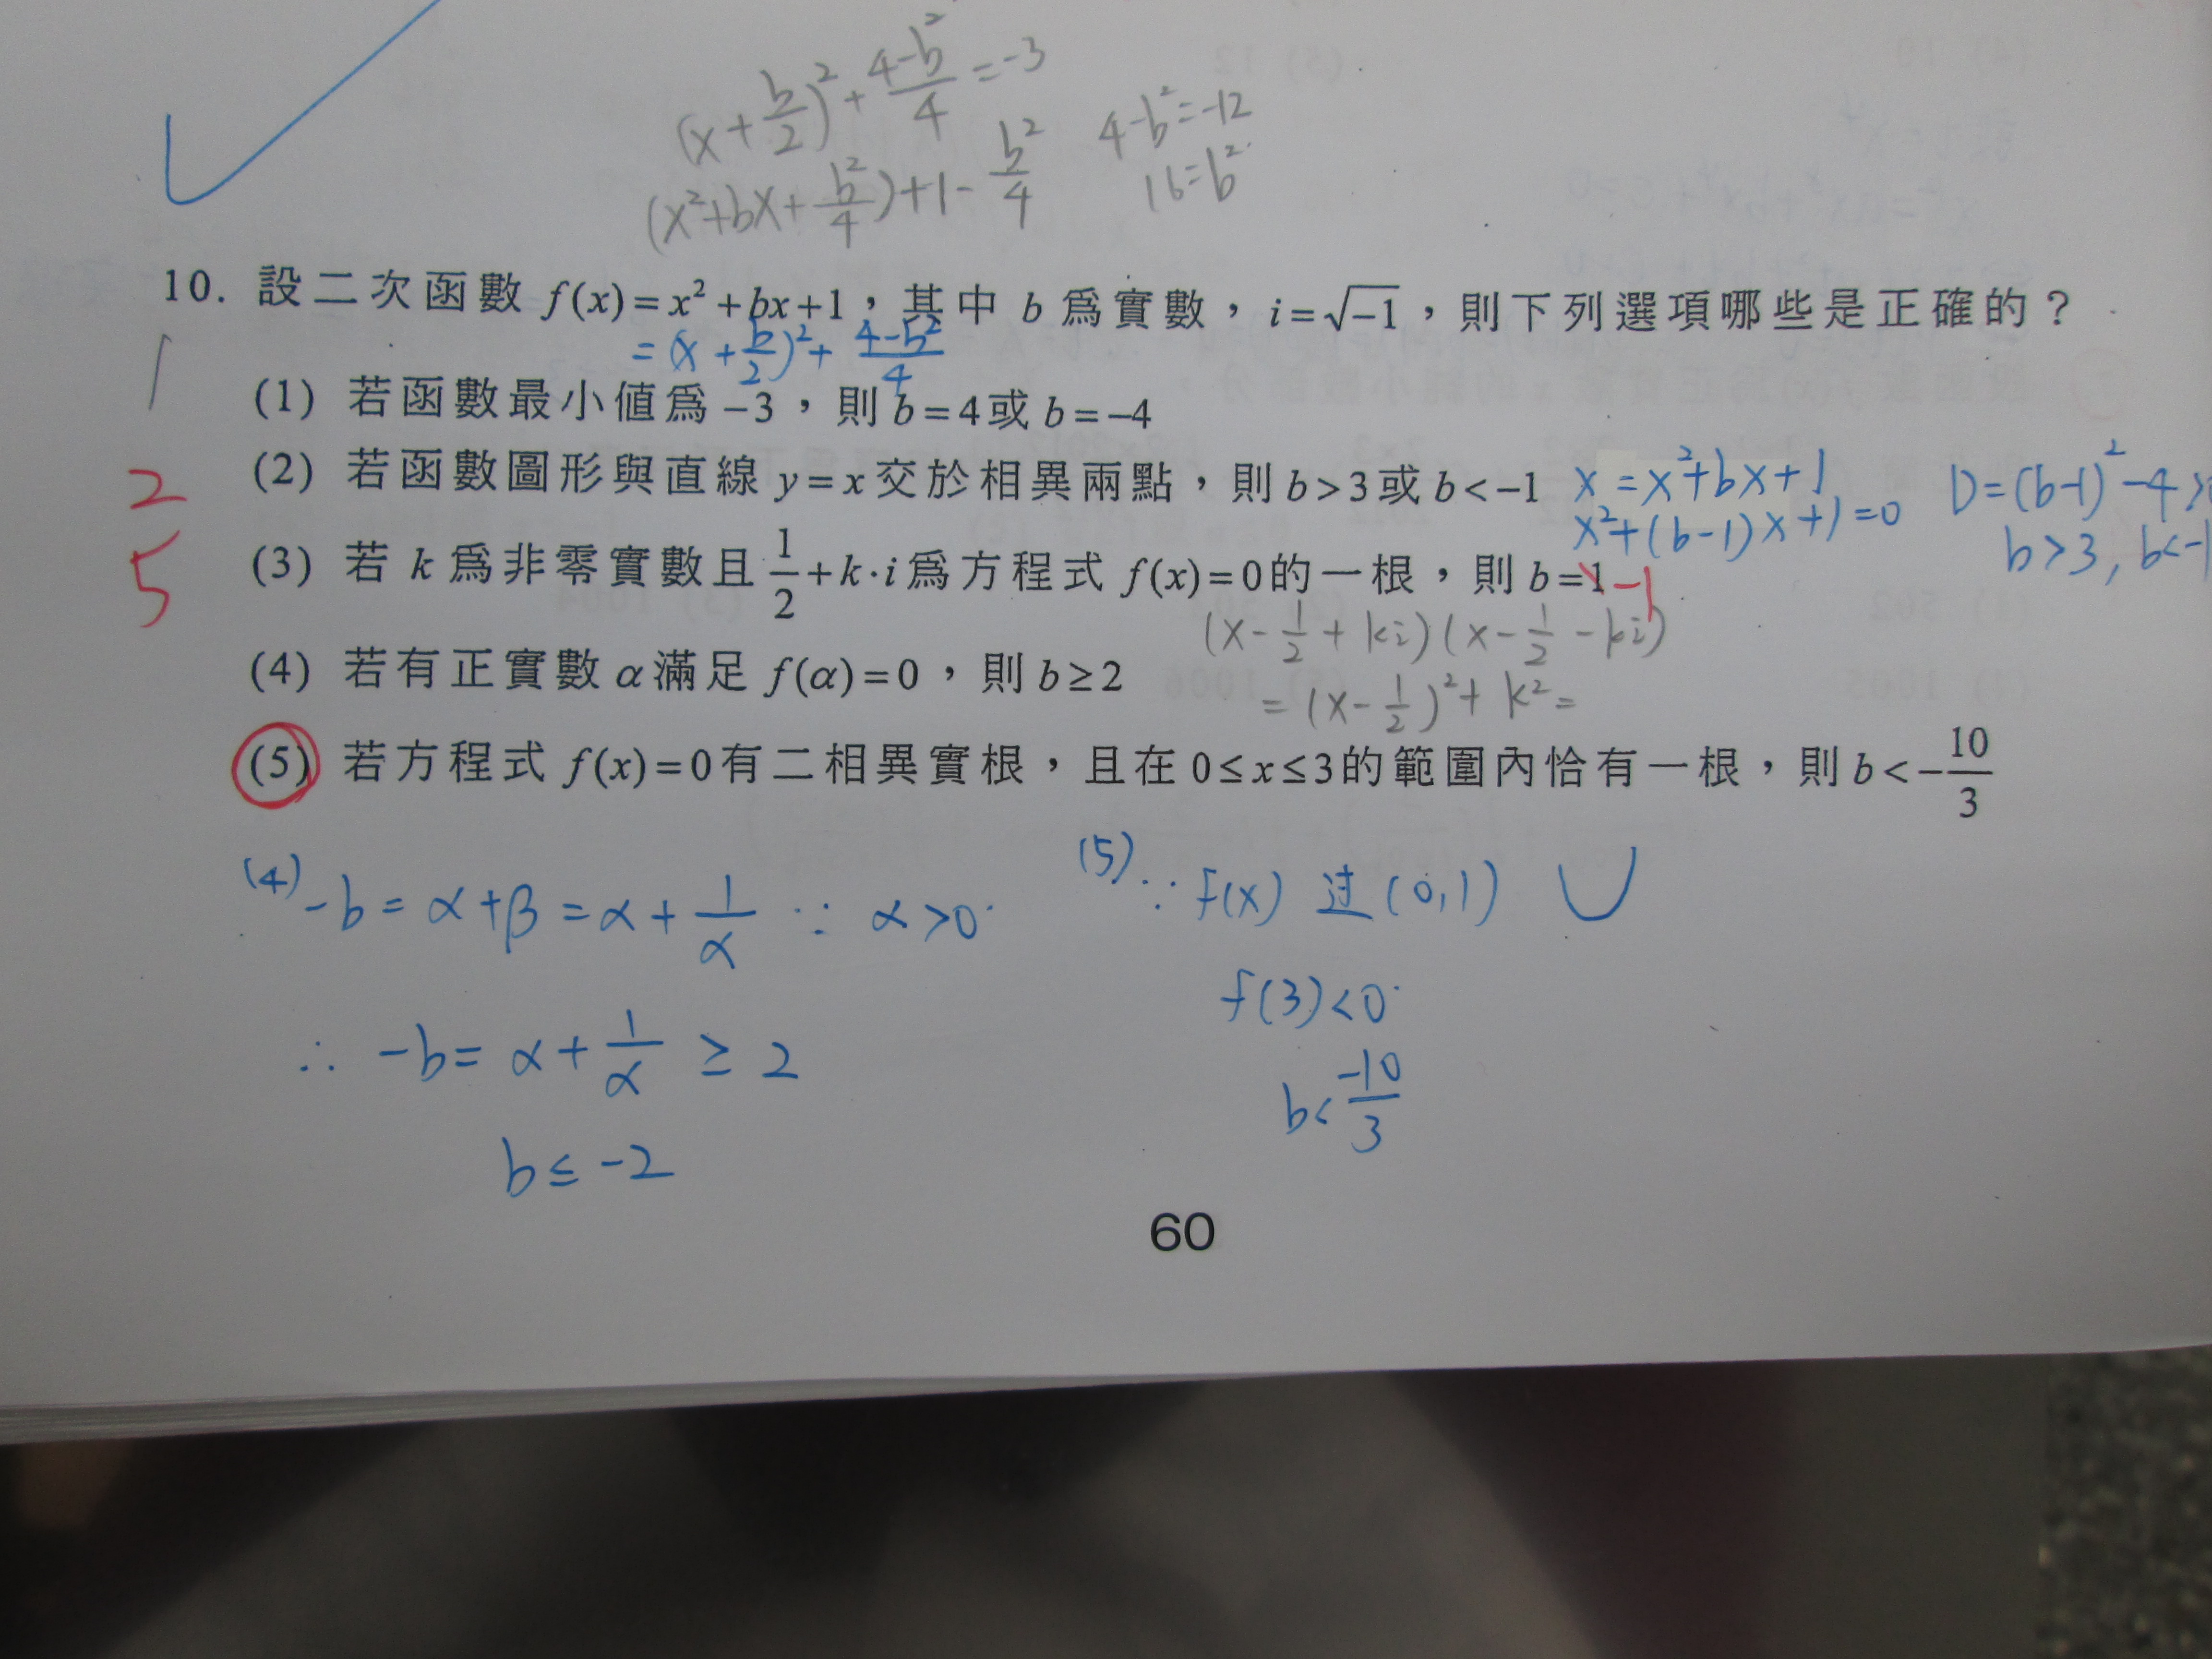 (x+b/2)²+(4-b²)/4=-3
(x²+bx+b²/4)+1-b²/4
4-b²=-12
16=b²
10. 設二次函數 f(x)=x²+bx+1，其中 b 為實數，i=√-1，則下列選項哪些是正確的？
=(x+b/2)²+(4-b²)/4
(1) 若函數最小值為 -3，則 b=4 或 b=-4
1
(2) 若函數圖形與直線 y=x 交於相異兩點，則 b>3 或 b<-1
2
x=x²+bx+1
x²+(b-1)x+1=0
D=(b-1)²-4>
b>3, b<-1
(3) 若 k 為非零實數且 1/2+k·i 為方程式 f(x)=0 的一根，則 b=1
-1
5
(x-1/2+ki)(x-1/2-ki)
=(x-1/2)²+k²=
(4) 若有正實數 α 滿足 f(α)=0，則 b≥2
(5) 若方程式 f(x)=0 有二相異實根，且在 0≤x≤3 的範圍內恰有一根，則 b<-10/3
(4) -b=α+β=α+1/α ∵ α>0
∴ -b=α+1/α ≥ 2
b≤-2
(5) ∵ f(x) 过 (0,1)
f(3)<0
b<-10/3
60